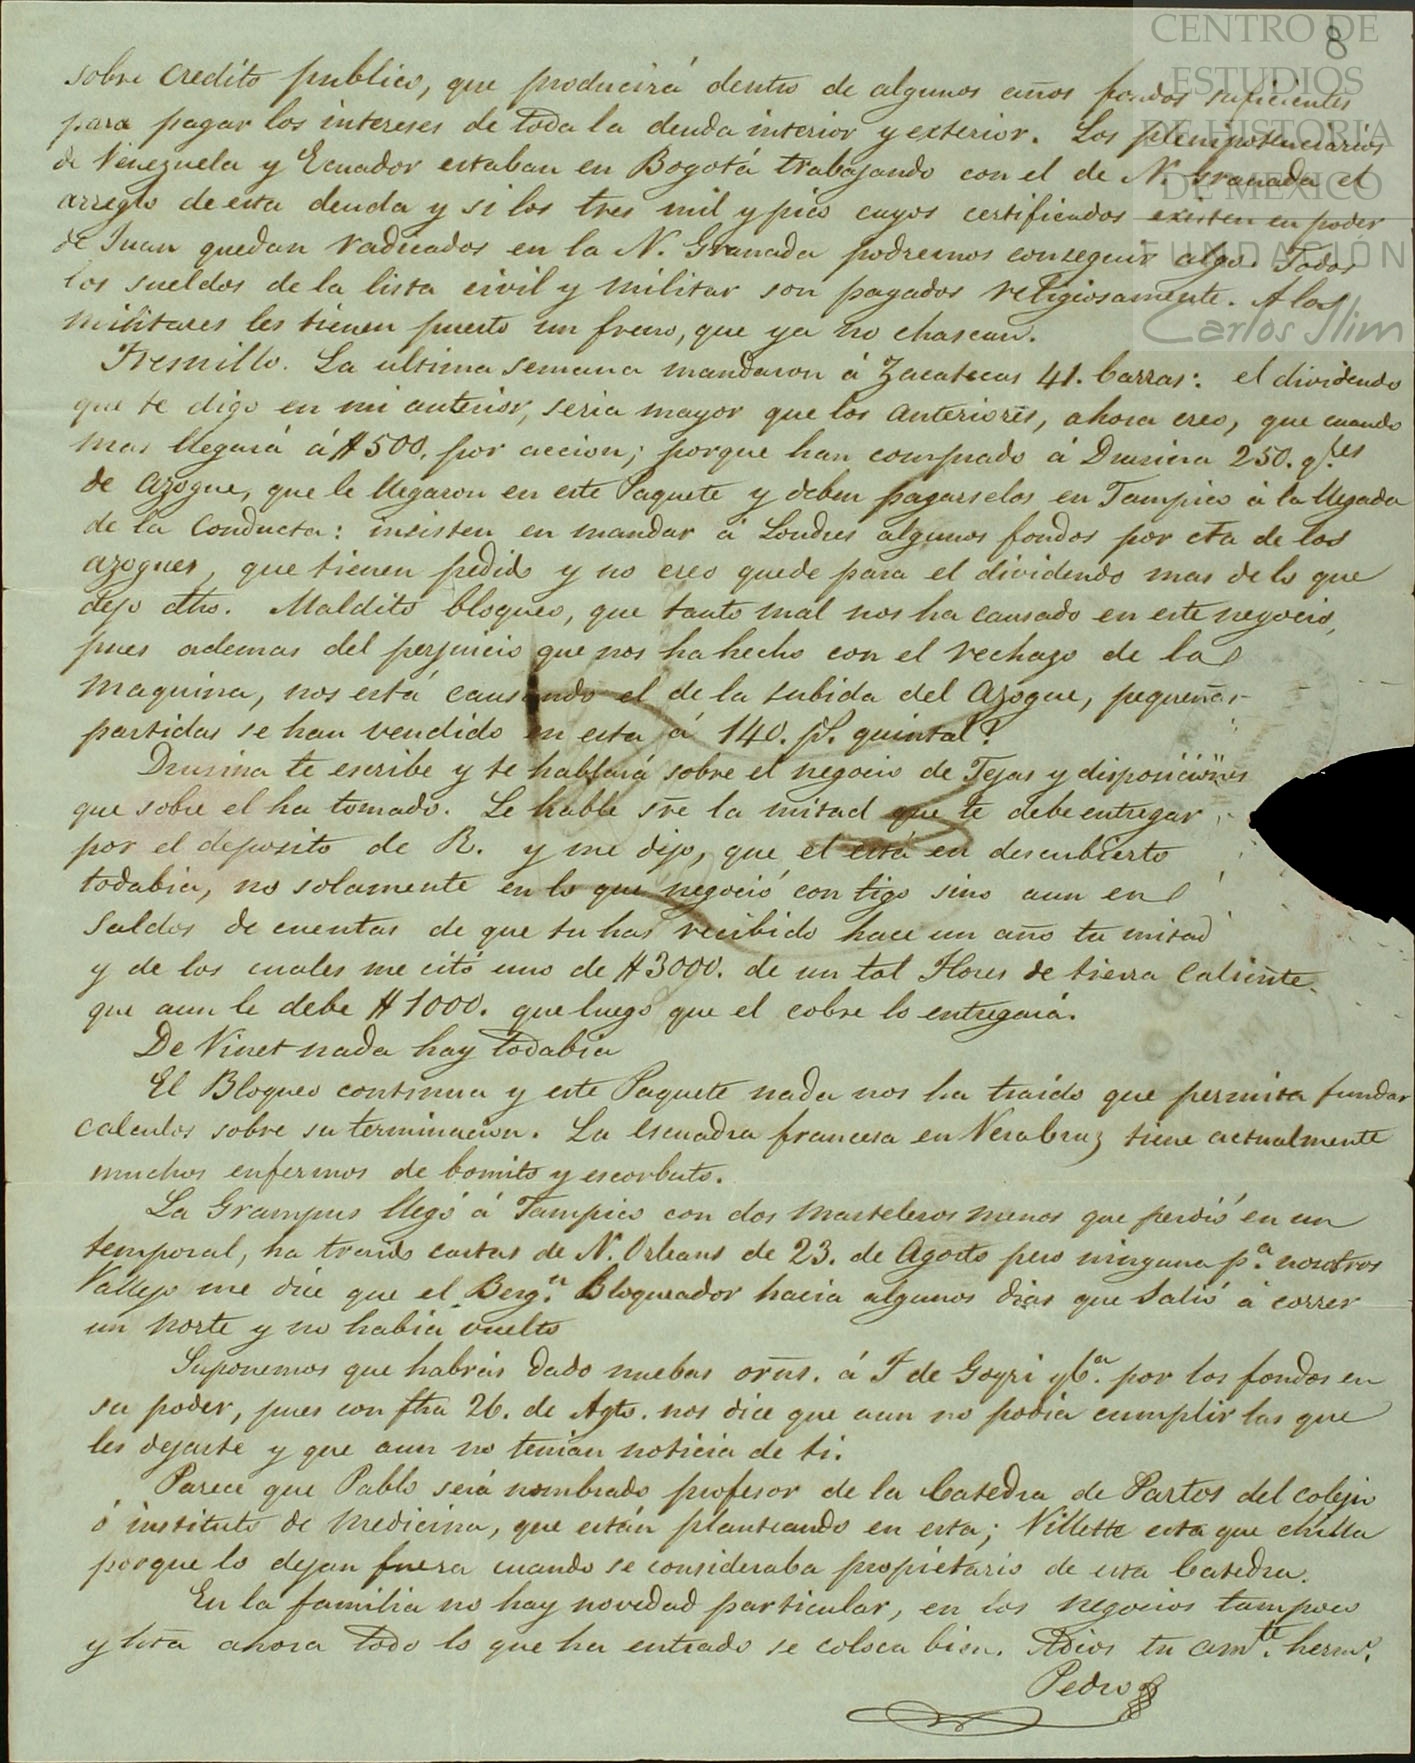 CENTRO DE
ESTUDIOS
DE HISTORIA
DE MEXICO
FUNDACIÓN
Carlos Slim
8
sobre credito publico, que producirá dentro de algunos años fondos suficientes
para pagar los intereses de toda la deuda interior y exterior. Los plenipotenciarios
de Venezuela y Ecuador estaban en Bogotá trabajando con el de N. Granada el
arreglo de esta deuda y si los tres mil y pico cuyos certificados existen en poder
de Juan quedan radicados en la N. Granada podremos conseguir algo. Todos
los sueldos de la lista civil y militar son pagados religiosamente. A los
militares les tienen puesto un freno, que ya no chascan.
Fresnillo. La ultima semana mandaron á Zacatecas 41. barras: el dividendo
que te digo en mi anterior, seria mayor que los anteriores, ahora creo, que cuando
mas llegará á $500. por accion; porque han comprado á Drusina 250. q.les
de azogue, que le llegaron en este Paquete y deben pagarselos en Tampico á la llegada
de la Conducta: insisten en mandar á Londres algunos fondos por cta de los
azogues, que tienen pedido y no creo quede para el dividendo mas de lo que
dejo dho. Maldito bloqueo, que tanto mal nos ha causado en este negocio,
pues ademas del perjuicio que nos ha hecho con el rechazo de la
maquina, nos está causando el de la subida del azogue, pequeñas
partidas se han vendido en esta á 140. p.s quintal.
Drusina te escribe y te hablará sobre el negocio de Tejas y disposiciones
que sobre el ha tomado. Le hable sre la mitad que te debe entregar
por el deposito de R. y me dijo, que el está en descubierto
todabia, no solamente en lo que negoció con tigo sino aun en
saldos de cuentas de que tu has recibido hace un año tu mitad
y de los cuales me citó uno de $3000. de un tal Flores de tierra caliente
que aun le debe $1000. que luego que el cobre lo entregará.
De Vinet nada hay todabia
El Bloqueo continua y este Paquete nada nos ha traido que permita fundar
calculos sobre su terminacion. La escuadra francesa en Vera Cruz tiene actualmente
muchos enfermos de bomito y escorbuto.
La Grampus llegó á Tampico con dos masteleros menos que perdió en un
temporal, ha traido cartas de N. Orleans de 23. de Agosto pero ninguna p.a nosotros
Vallejo me dice que el Berg.n Bloqueador hacia algunos dias que salió á correr
un norte y no habia vuelto
Suponemos que habrás dado nuebas orns. á F de Goyri y C.a por los fondos en
su poder, pues con fha 26. de Agto. nos dice que aun no podia cumplir las que
les dejaste y que aun no tenian noticia de ti.
Parece que Pablo será nombrado profesor de la Catedra de Partos del colejio
ó instituto de medicina, que están planteando en esta; Villette esta que chilla
porque lo dejan fuera cuando se consideraba propietario de esta Catedra.
En la familia no hay novedad particular, en los negocios tampoco
y hta ahora todo lo que ha entrado se coloca bien. Adios tu am.te herm.o
Pedro